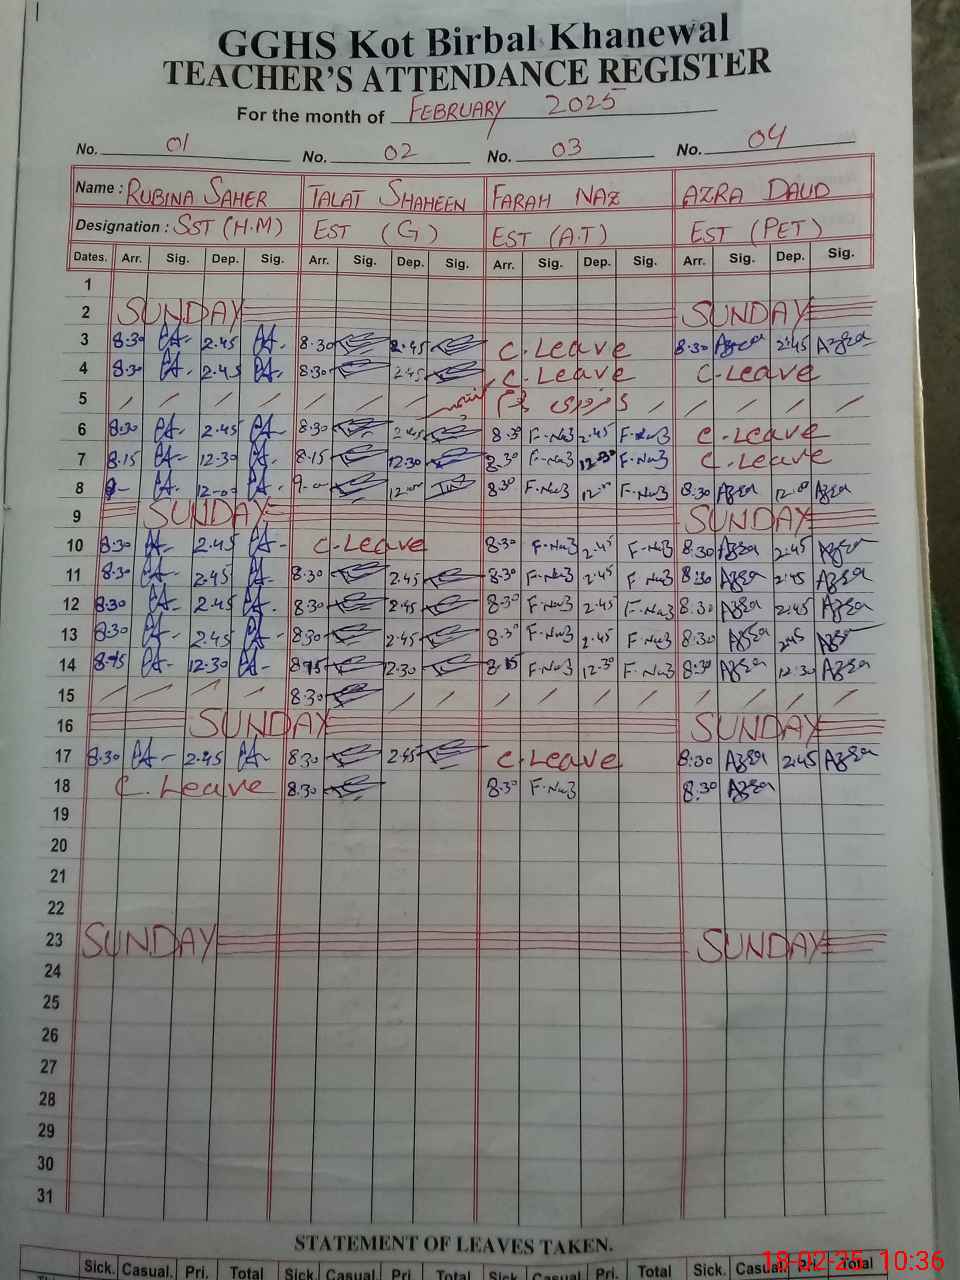 GGHS Kot Birbal Khanewal
TEACHER'S ATTENDANCE REGISTER
For the month of FEBRUARY 2025
No. 01 No. 02 No. 03 No. 04
Name : RUBINA SAHER TALAT SHAHEEN FARAH NAZ AZRA DAUD
Designation : SST (H.M) EST (G) EST (A.T) EST (PET)
Dates. Arr. Sig. Dep. Sig. Arr. Sig. Dep. Sig. Arr. Sig. Dep. Sig. Arr. Sig. Dep. Sig.
1
2 SUNDAY SUNDAY
3 8.30 2.45 8.30 2.45 C.Leave 8.30 Azra 2.45 Azra
4 8.30 2.45 8.30 2.45 C.Leave C.Leave
5 / / / / / / / 5 فروری یوم / / / / /
6 8.30 2.45 8.30 2.45 8.30 F.Naz 2.45 F.Naz C.Leave
7 8.15 12.30 8.15 12.30 8.30 F.Naz 12.30 F.Naz C.Leave
8 9- 12.00 9.00 12.00 8.30 F.Naz 12.00 F.Naz 8.30 Azra 12.00 Azra
9 SUNDAY SUNDAY
10 8.30 2.45 C.Leave 8.30 F.Naz 2.45 F.Naz 8.30 Azra 2.45 Azra
11 8.30 2.45 8.30 2.45 8.30 F.Naz 2.45 F.Naz 8.30 Azra 2.45 Azra
12 8.30 2.45 8.30 2.45 8.30 F.Naz 2.45 F.Naz 8.30 Azra 2.45 Azra
13 8.30 2.45 8.30 2.45 8.30 F.Naz 2.45 F.Naz 8.30 Azra 2.45 Azra
14 8.15 12.30 8.15 12.30 8.15 F.Naz 12.30 F.Naz 8.30 Azra 12.30 Azra
15 / / / / 8.30 / / / / / / / / / /
16 SUNDAY SUNDAY
17 8.30 2.45 8.30 2.45 C.Leave 8.30 Azra 2.45 Azra
18 C.Leave 8.30 8.30 F.Naz 8.30 Azra
19
20
21
22
23 SUNDAY SUNDAY
24
25
26
27
28
29
30
31
STATEMENT OF LEAVES TAKEN.
Sick. Casual. Pri. Total Sick. Casual. Pri. Total Sick. Casual. Pri. Total Sick. Casual. Pri. Total
18-02-25 10:36